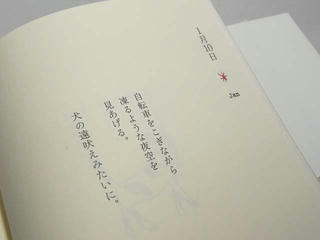 1月10日
Jan
自転車をこぎながら
凍るような夜空を
見あげる。
犬の遠吠えみたいに。